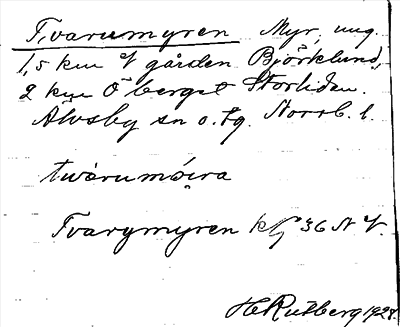 Tvarumyren Myr, ung.
1,5 km V gården Björklund,
2 km Ö berget Storliden.
Älvsby sn o. tg. Norrb. l.
tvàrumóira
Tvarymyren kbl 36 N V.
H Rutberg 1928.